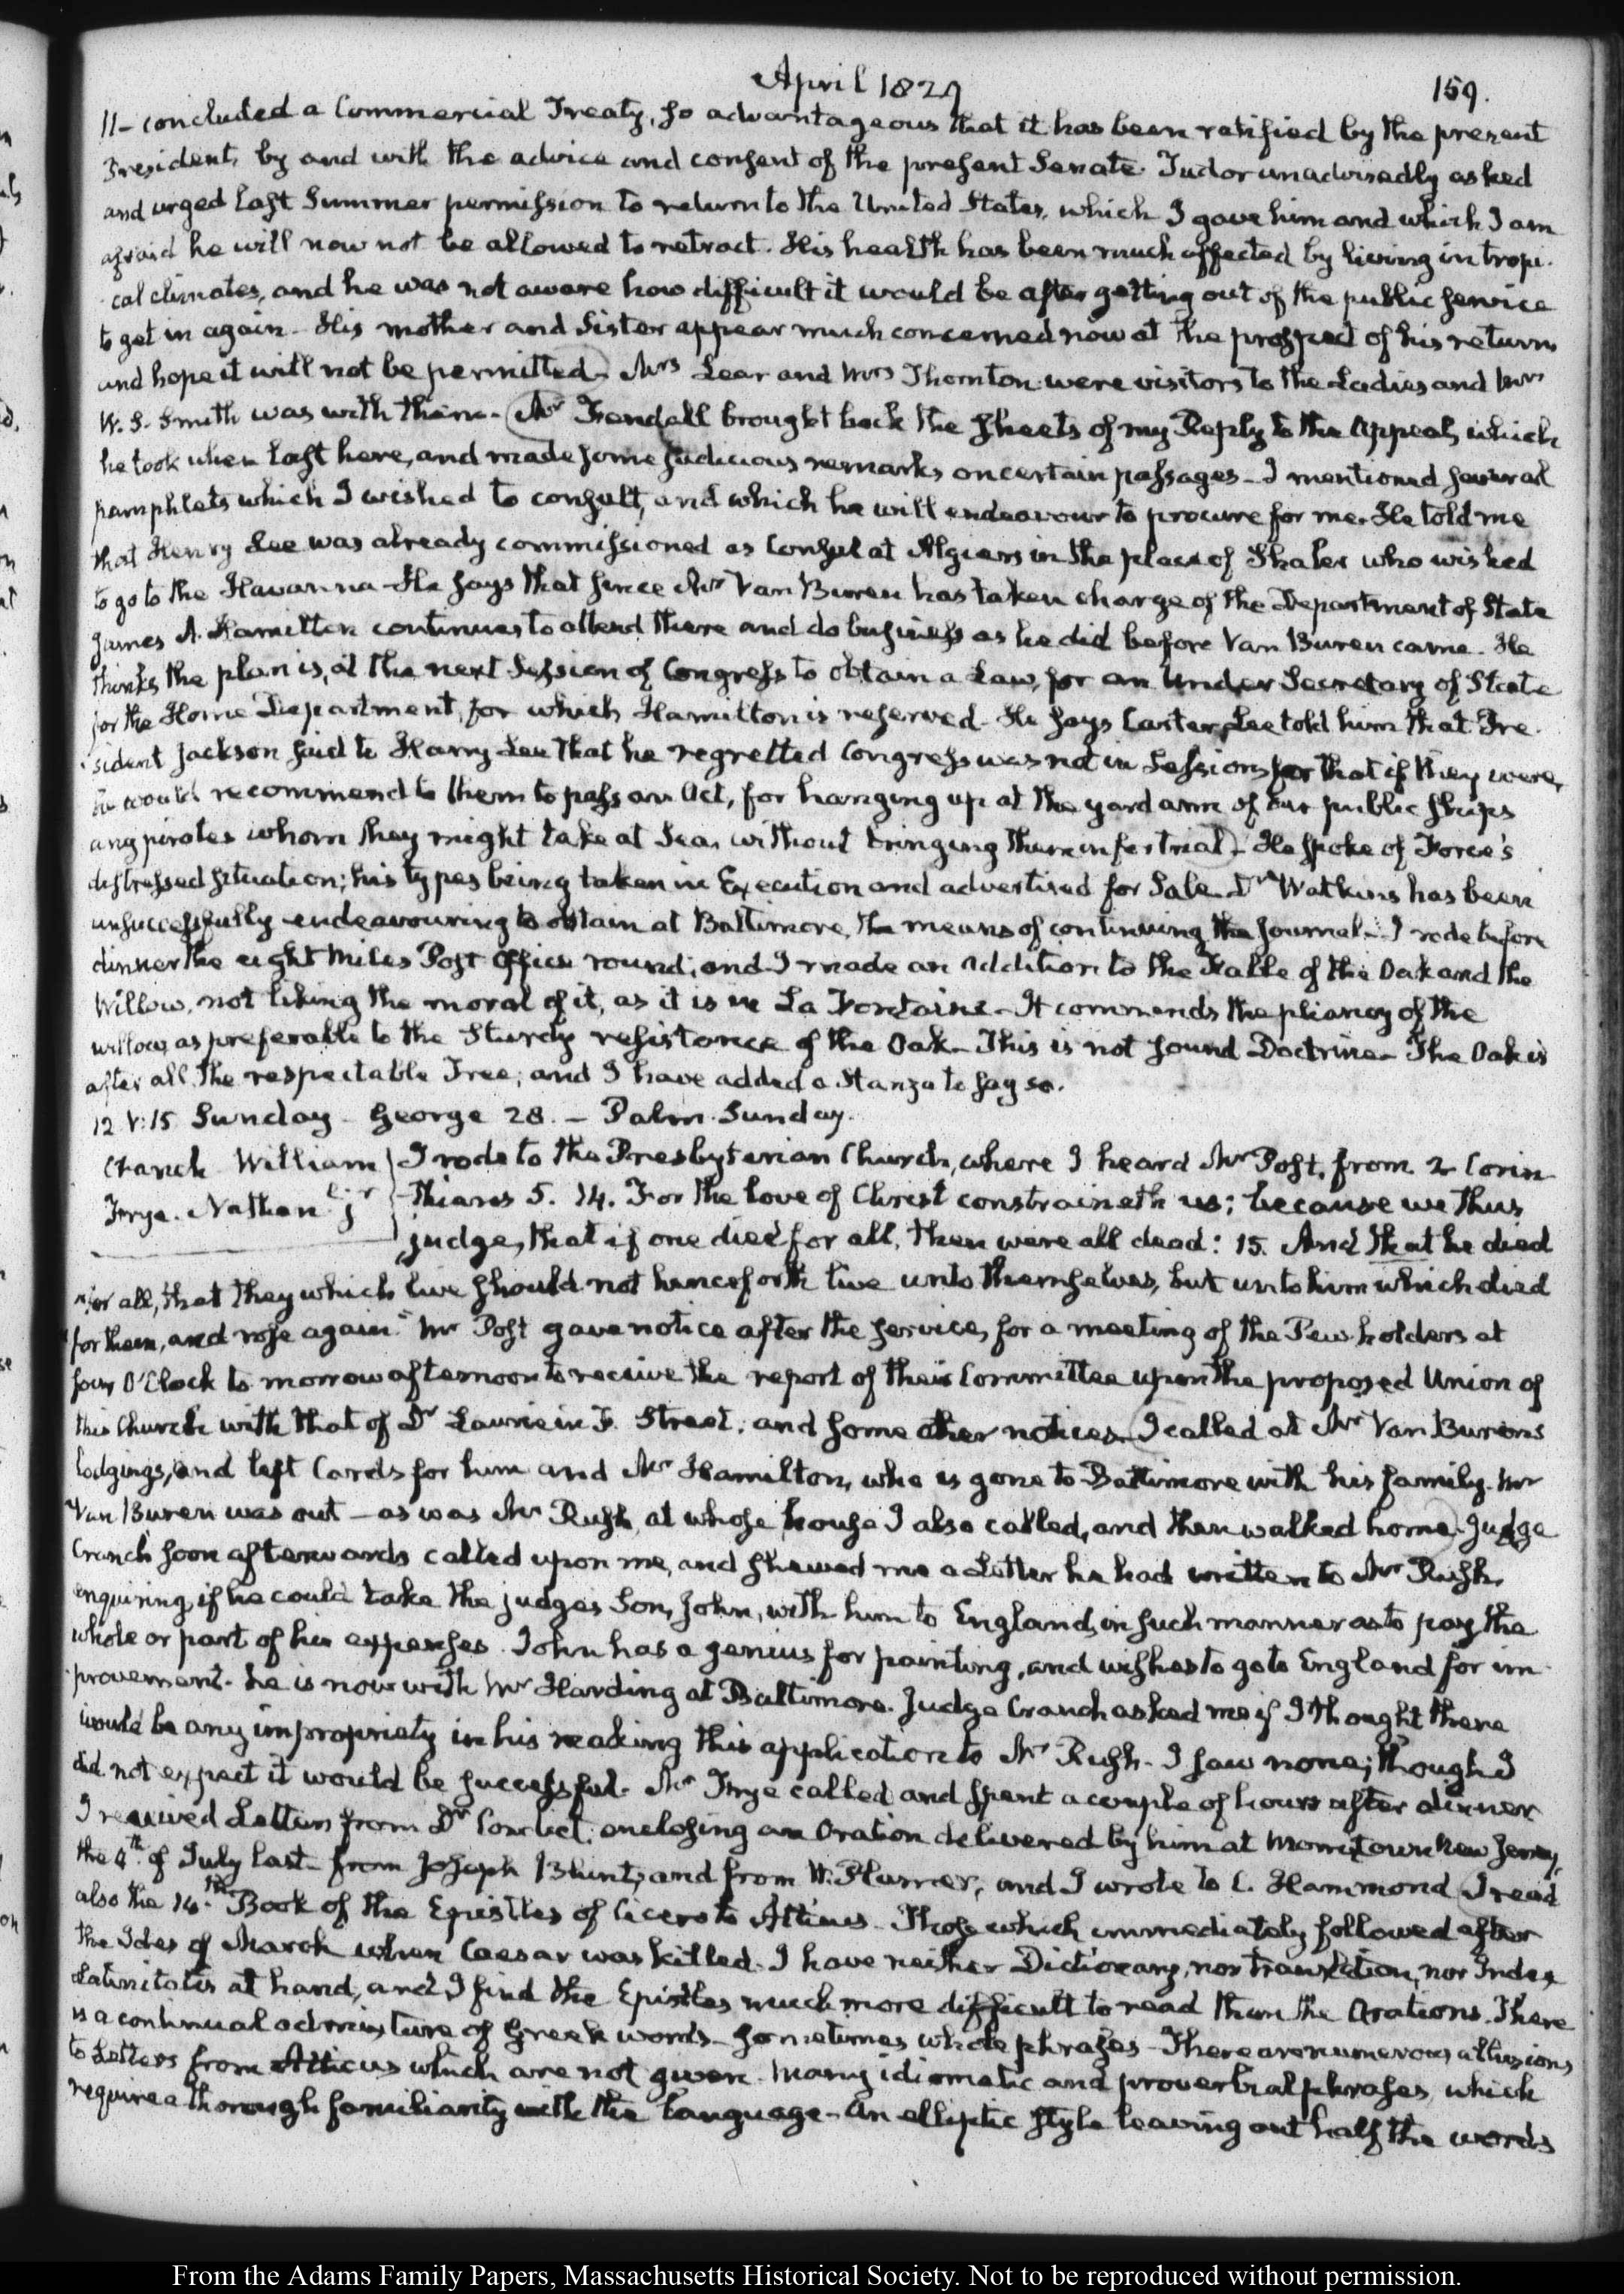 April 1829
159.
11- concluded a Commercial Treaty, so advantageous that it has been ratified by the present
President, by and with the advice and consent of the present Senate. Tudor unadvisedly asked
and urged last Summer permission to return to the United States, which I gave him and which I am
afraid he will now not be allowed to retract. His health has been much affected by living in tropi-
cal climates, and he was not aware how difficult it would be after getting out of the public service
to get in again. His mother and Sister appear much concerned now at the prospect of his return
and hope it will not be permitted. Mrs Lear and Mrs Thornton were visitors to the Ladies and Mrs
W. S. Smith was with them. Mr Kendall brought back the sheets of my Reply to the Appeal, which
he took when last here, and made some judicious remarks on certain passages - I mentioned several
pamphlets which I wished to consult, and which he will endeavour to procure for me. He told me
that Henry Lee was already commissioned as Consul at Algiers in the place of Shaler who wished
to go to the Havanna - He says that since Mr Van Buren has taken charge of the Department of State
James A. Hamilton continues to attend there and do business as he did before Van Buren came. He
thinks the plan is, at the next Session of Congress to obtain a Law, for an Under Secretary of State
for the Home Department, for which Hamilton is reserved. He says Carter Lee told him that Pre-
sident Jackson said to Harry Lee that he regretted Congress was not in Session, for that if they were,
he would recommend to them to pass an Act, for hanging up at the yard arm of our public ships
any pirates whom they might take at Sea, without bringing them in for trial - He spoke of Force's
distressed situation; his types being taken in Execution and advertised for Sale. Dr Watkins has been
unsuccessfully endeavouring to obtain at Baltimore, the means of continuing the Journal - I rode before
dinner the eight Miles Post Office round; and I made an addition to the Fable of the Oak and the
Willow, not liking the moral of it, as it is in La Fontaine - It commends the pliancy of the
willow, as preferable to the Sturdy resistance of the Oak - This is not sound Doctrine - The Oak is
after all the respectable Tree; and I have added a Stanza to say so.
12. V:15. Sunday - George 28. - Palm Sunday.
Cranch William
Frye. Nathan jr
I rode to the Presbyterian Church, where I heard Mr Post, from 2 Corin-
thians 5. 14. For the love of Christ constraineth us; because we thus
judge, that if one died for all, then were all dead: 15. And that he died
"for all, that they which live should not henceforth live unto themselves, but unto him which died
"for them, and rose again." Mr Post gave notice after the service, for a meeting of the Pew-holders at
four O'Clock to morrow afternoon to receive the report of their Committee upon the proposed Union of
this Church with that of Dr Laurie in F. Street; and some other notices. I called at Mr Van Burens
lodgings, and left Cards for him and Mr Hamilton, who is gone to Baltimore with his family. Mr
Van Buren was out - as was Mr Rush, at whose house I also called, and then walked home. Judge
Cranch soon afterwards called upon me, and shewed me a Letter he had written to Mr Rush,
enquiring if he could take the judges Son, John, with him to England, in such manner as to pay the
whole or part of his expenses. John has a genius for painting, and wishes to go to England for im-
provement. he is now with Mr Harding at Baltimore. Judge Cranch asked me if I thought there
would be any impropriety in his making this application to Mr Rush - I saw none; though I
did not expect it would be successful. Mr Frye called and spent a couple of hours after dinner
I received Letters from Dr Condict: enclosing an Oration delivered by him at Morristown New Jersey,
the 4th. of July last - from Joseph Blunt, and from W. Plumer, and I wrote to C. Hammond. I read
also the 14th. Book of the Epistles of Cicero to Atticus - Those which immediately followed after
the Ides of March when Caesar was killed. I have neither Dictionary, nor translation, nor Index
Latinitatis at hand, and I find the Epistles much more difficult to read than the Orations. There
is a continual admixture of Greek words - sometimes whole phrases - There are numerous allusions
to Letters from Atticus which are not given. Many idiomatic and proverbial phrases, which
require a thorough familiarity with the language - An elliptic style leaving out half the words
From the Adams Family Papers, Massachusetts Historical Society. Not to be reproduced without permission.